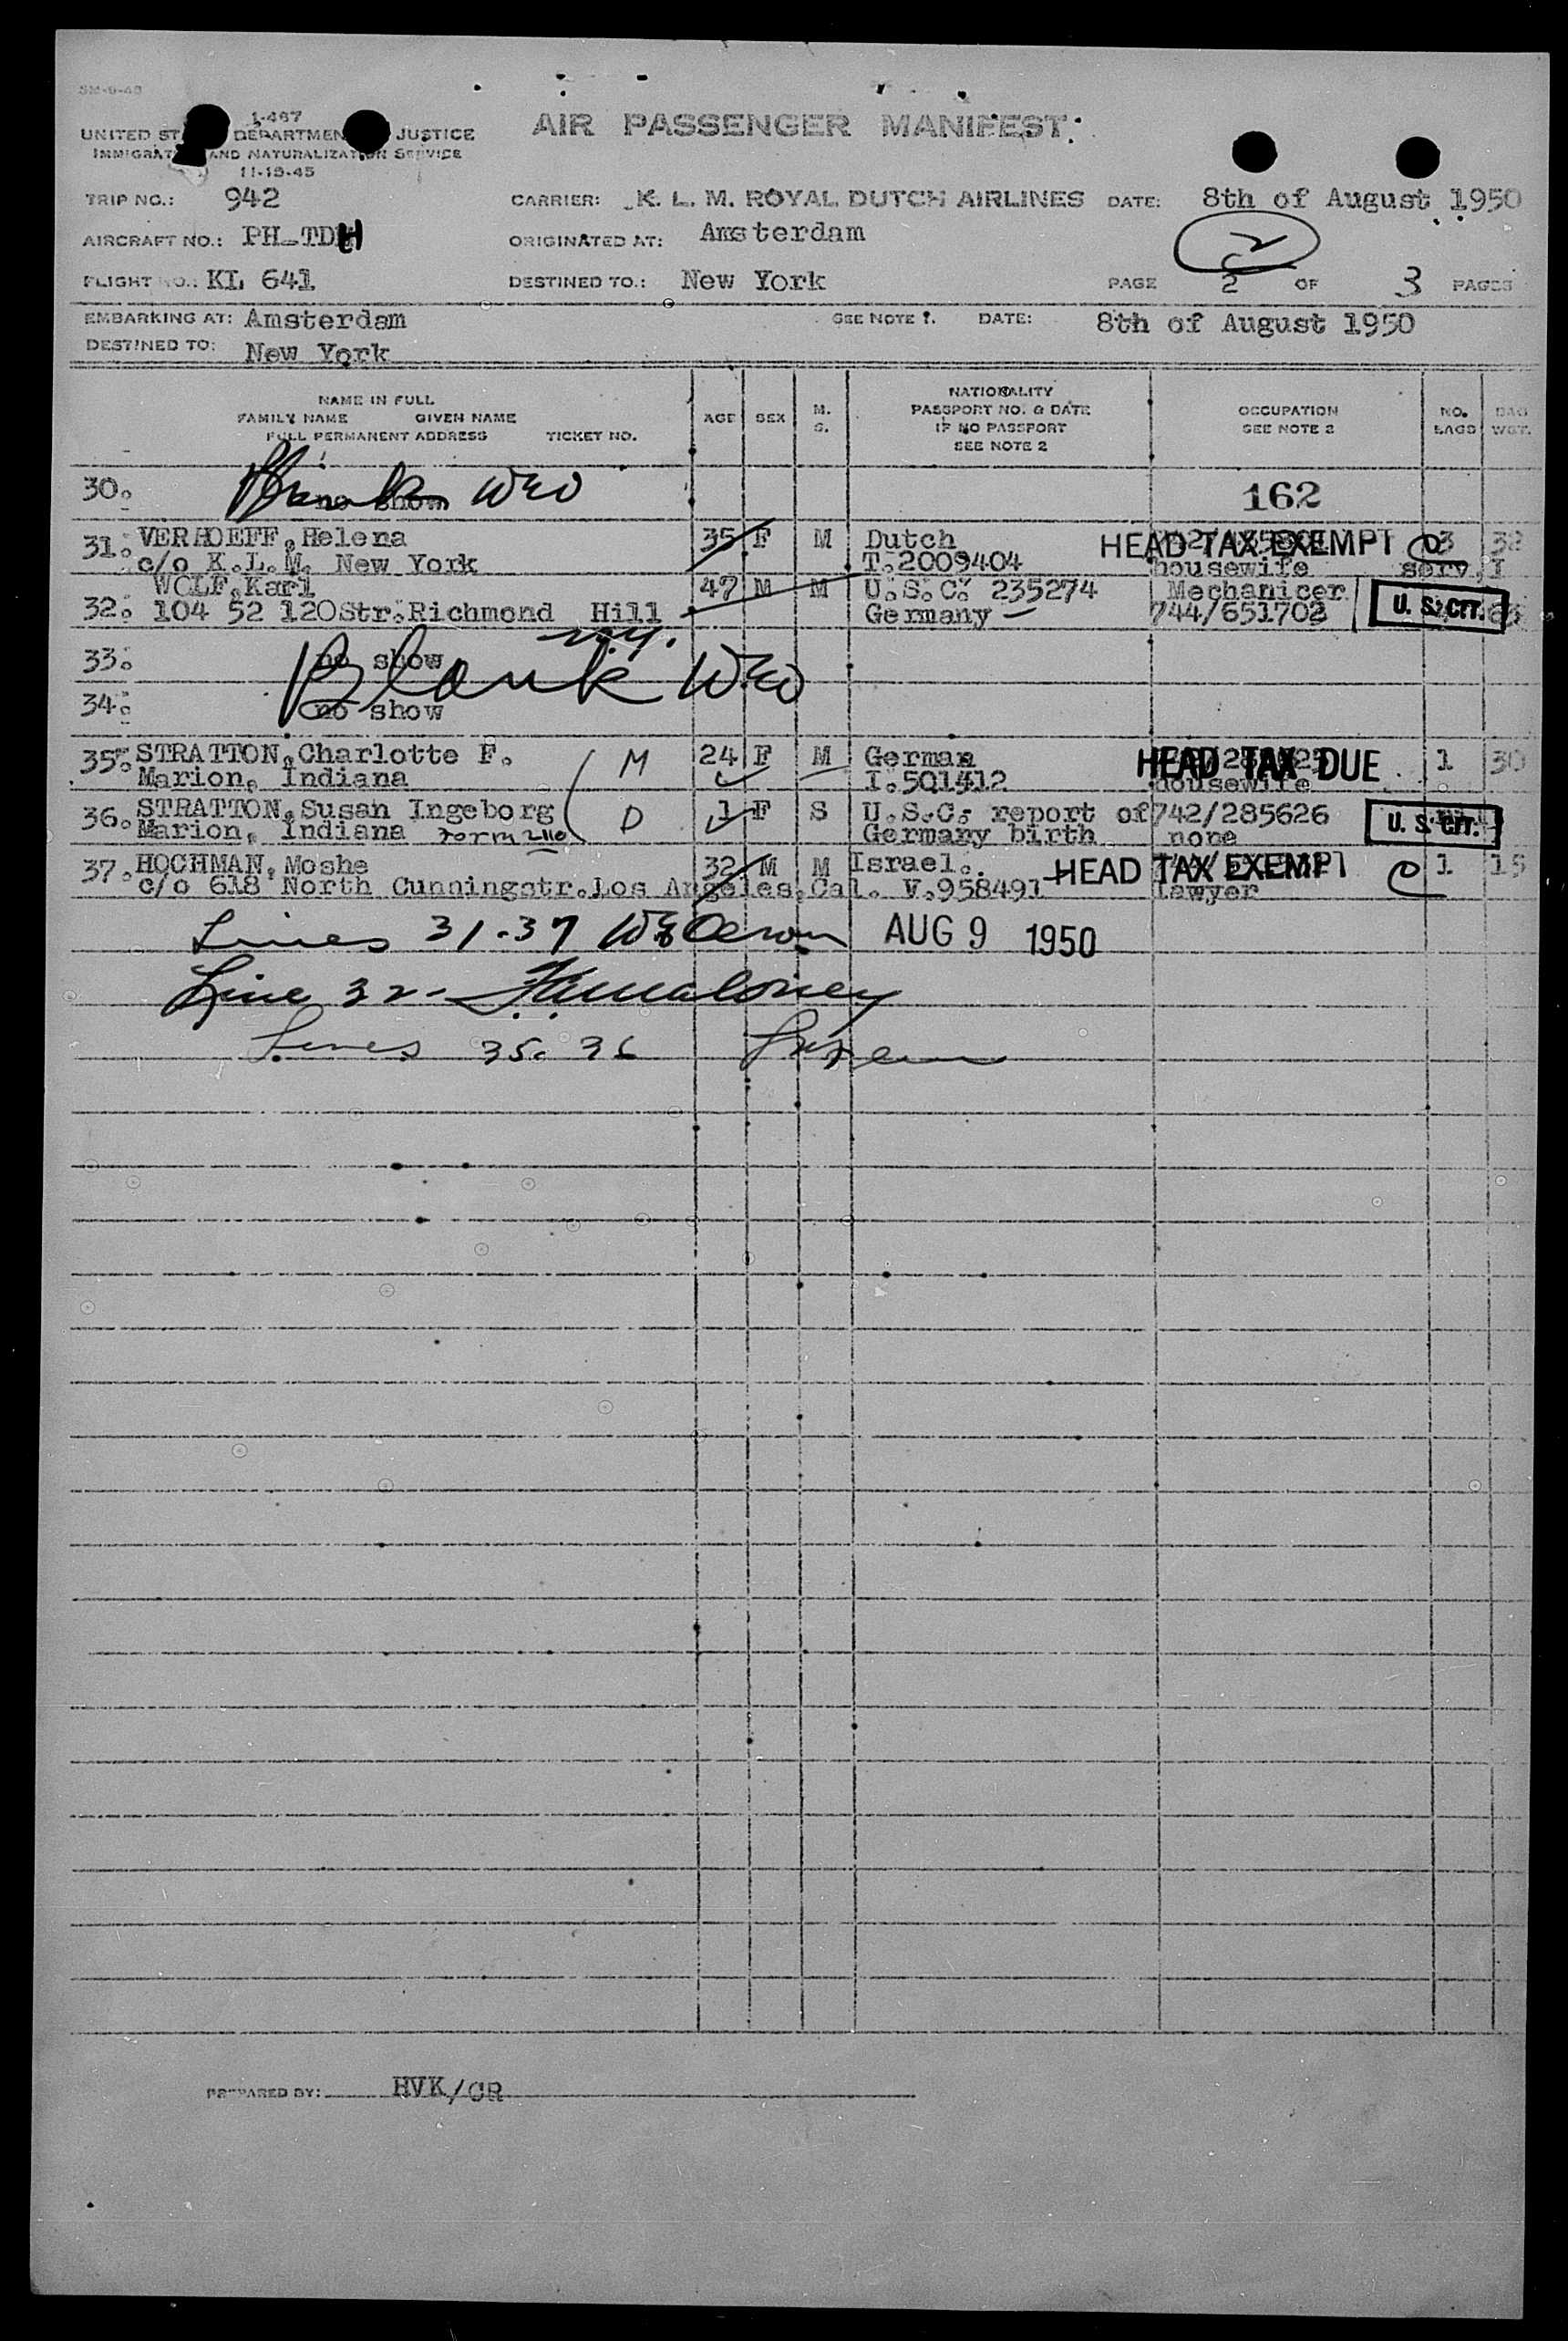 SM-6-49
I-467
UNITED ST DEPARTMEN JUSTICE
IMMIGRAT AND NATURALIZATION SERVICE
11-15-45
AIR PASSENGER MANIFEST
TRIP NO.: 942 CARRIER: K. L. M. ROYAL DUTCH AIRLINES DATE: 8th of August 1950
AIRCRAFT NO.: PH-TDH ORIGINATED AT: Amsterdam 2
FLIGHT NO.: KL 641 DESTINED TO.: New York PAGE 2 OF 3 PAGES
EMBARKING AT: Amsterdam SEE NOTE 1. DATE: 8th of August 1950
DESTINED TO: New York
NAME IN FULL
FAMILY NAME GIVEN NAME
FULL PERMANENT ADDRESS TICKET NO.
AGE SEX M. S.
NATIONALITY
PASSPORT NO. & DATE
IF NO PASSPORT
SEE NOTE 2
OCCUPATION
SEE NOTE 2
NO. BAGS
BAG WGT.
30. no show Blank WEO 162
31. VERHOEFF, Helena 35 F M Dutch HEAD TAX EXEMPT 3 32
c/o K.L.M. New York T.2009404 housewife serv.
WOLF, Karl 47 M M U.S.C. 235274 Mechanicer
32. 104 52 120Str.Richmond Hill N.Y. Germany 744/651702 U. S. CIT.
33. no show
Blank WEO
34. no show
35. STRATTON, Charlotte F. M 24 F M German HEAD TAX DUE 1 30
Marion, Indiana I.501412 housewife
36. STRATTON, Susan Ingeborg D 1 F S U.S.C. report of 742/285626 U. S. CIT.
Marion, Indiana Form Germany birth none
37. HOCHMAN, Moshe 32 M M Israel. HEAD TAX EXEMPT 1 15
c/o 618 North Cunningstr.Los Angeles,Cal. V.958491 lawyer
Lines 31-37 AUG 9 1950
Line 32-
Lines 35. 36
PREPARED BY: HVK/CR